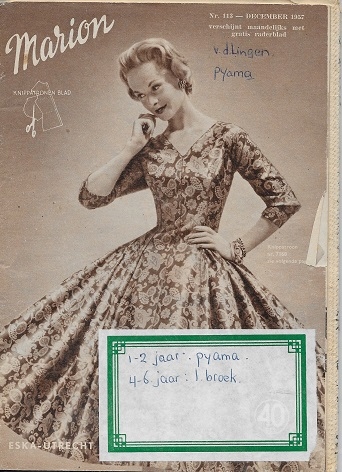 Nr. 113 — DECEMBER 1957
verschijnt maandelijks met
gratis raderblad
Marion
KNIPPATRONEN BLAD
v.d. Lingen.
pyama
1-2 jaar: pyama.
4-6 jaar: 1 broek.
40
ESKA-UTRECHT